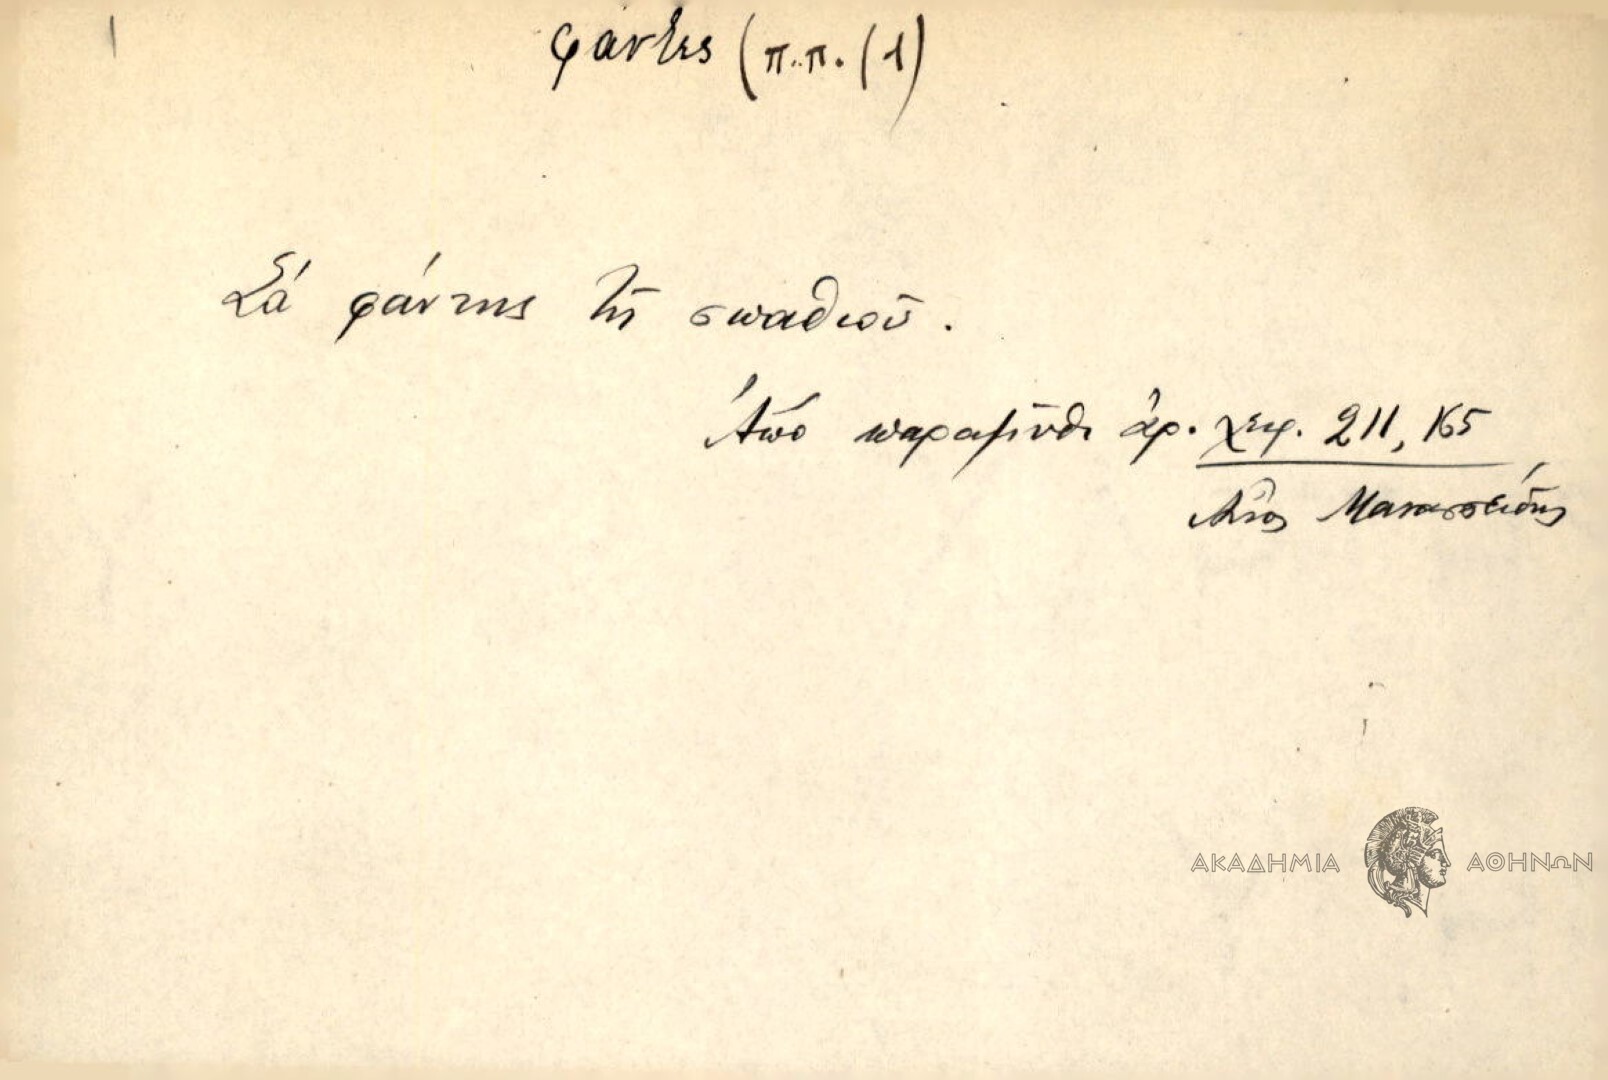 φάντης (π.π. (1)
Σά φάντης τσῆ σπαθιοῦ.
Ἀπό παραμύθι ἀρ. χειρ. 211, 165
Μανασσείδης
ΑΚΑΔΗΜΙΑ ΑΘΗΝΩΝ